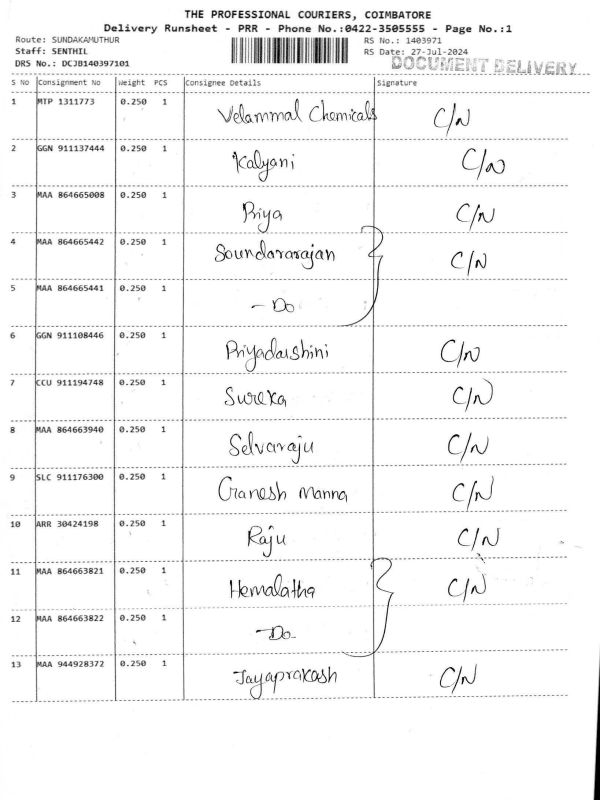 THE PROFESSIONAL COURIERS, COIMBATORE
Delivery Runsheet - PRR - Phone No.:0422-3505555 - Page No.:1
Route: SUNDAKAMUTHUR RS No.: 1403971
Staff: SENTHIL RS Date: 27-Jul-2024
DRS No.: DCJB140397101 DOCUMENT DELIVERY
S No Consignment No Weight PCS Consignee Details Signature
1 MTP 1311773 0.250 1 Velammal Chemicals C/N
2 GGN 911137444 0.250 1 Kalyani C/N
3 MAA 864665008 0.250 1 Priya C/N
4 MAA 864665442 0.250 1 Soundararajan C/N
5 MAA 864665441 0.250 1 - Do
6 GGN 911108446 0.250 1 Priyadarshini C/N
7 CCU 911194748 0.250 1 Sureka C/N
8 MAA 864663940 0.250 1 Selvaraju C/N
9 SLC 911176300 0.250 1 Ganesh Manna C/N
10 ARR 30424198 0.250 1 Raju C/N
11 MAA 864663821 0.250 1 Hemalatha C/N
12 MAA 864663822 0.250 1 -Do-
13 MAA 944928372 0.250 1 Jayaprakash C/N